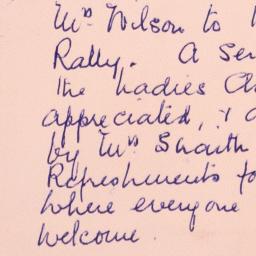 Mrs Wilson to
Rally. A Ser
the Ladies Ch
appreciated, & a
by Mrs Snaith
Refreshments fo
where everyone
welcome.